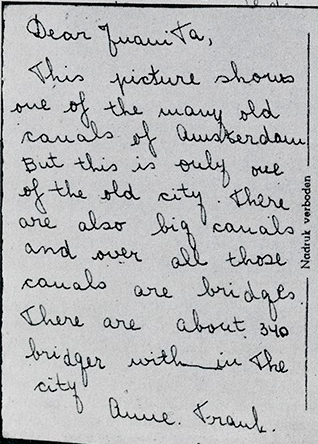 Dear Juanita,
This picture shows
one of the many old
canals of Amsterdam
But this is only one
of the old city. There
are also big canals
and over all those
canals are bridges.
There are about 340
bridger with in the
city
Anne. Frank.
Nadruk verboden